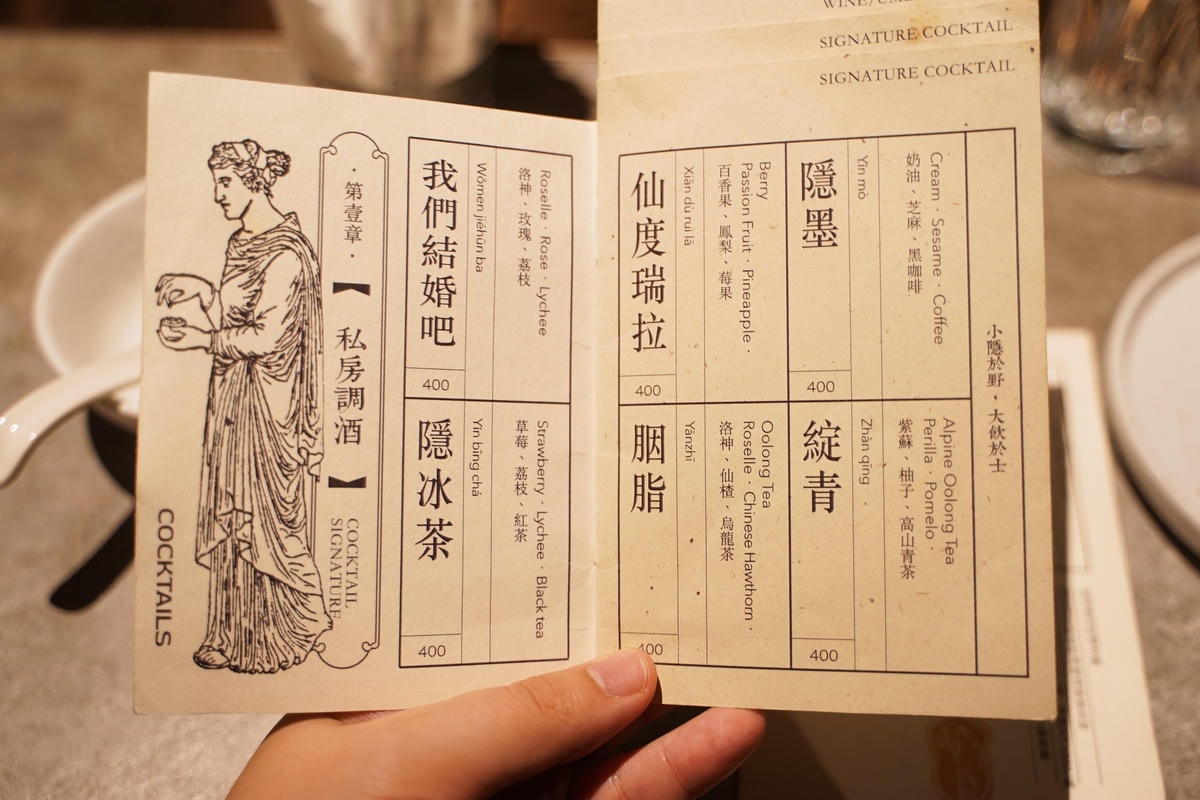 WINE/UME
SIGNATURE COCKTAIL
SIGNATURE COCKTAIL
COCKTAILS
·第壹章·
【私房調酒】
COCKTAIL
SIGNATURE
我們結婚吧
Wǒmen jiéhūn ba
Roselle · Rose · Lychee
洛神、玫瑰、荔枝
400
隱冰茶
Yǐn bīng chá
Strawberry · Lychee · Black tea
草莓、荔枝、紅茶
400
仙度瑞拉
Xiān dù ruì lā
Berry
Passion Fruit · Pineapple ·
百香果、鳳梨、莓果
400
胭脂
Yānzhī
Oolong Tea
Roselle · Chinese Hawthorn ·
洛神、仙楂、烏龍茶
400
隱墨
Yǐn mò
Cream · Sesame · Coffee
奶油、芝麻、黑咖啡
400
綻青
Zhàn qīng
Alpine Oolong Tea
Perilla · Pomelo ·
紫蘇、柚子、高山青茶
400
小隱於野，大飲於士